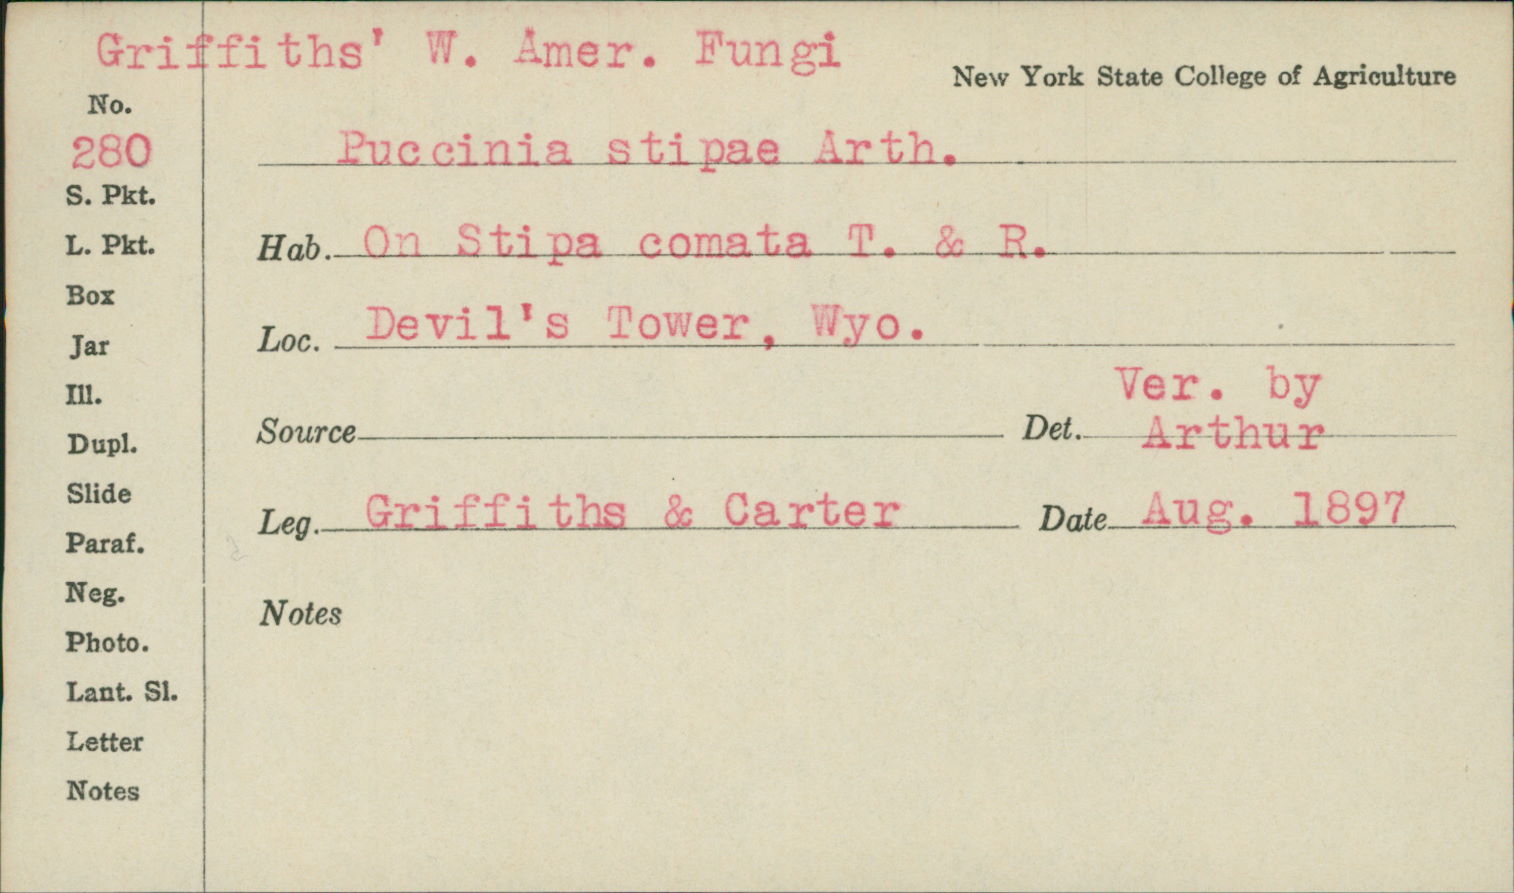 Griffiths' W. Amer. Fungi
New York State College of Agriculture
No.
280
Puccinia stipae Arth.
S. Pkt.
L. Pkt.
Hab. On Stipa comata T. & R.
Box
Loc. Devil's Tower, Wyo.
Jar
Ill.
Ver. by
Source
Det. Arthur
Dupl.
Slide
Leg. Griffiths & Carter
Date Aug. 1897
Paraf.
Neg.
Notes
Photo.
Lant. Sl.
Letter
Notes